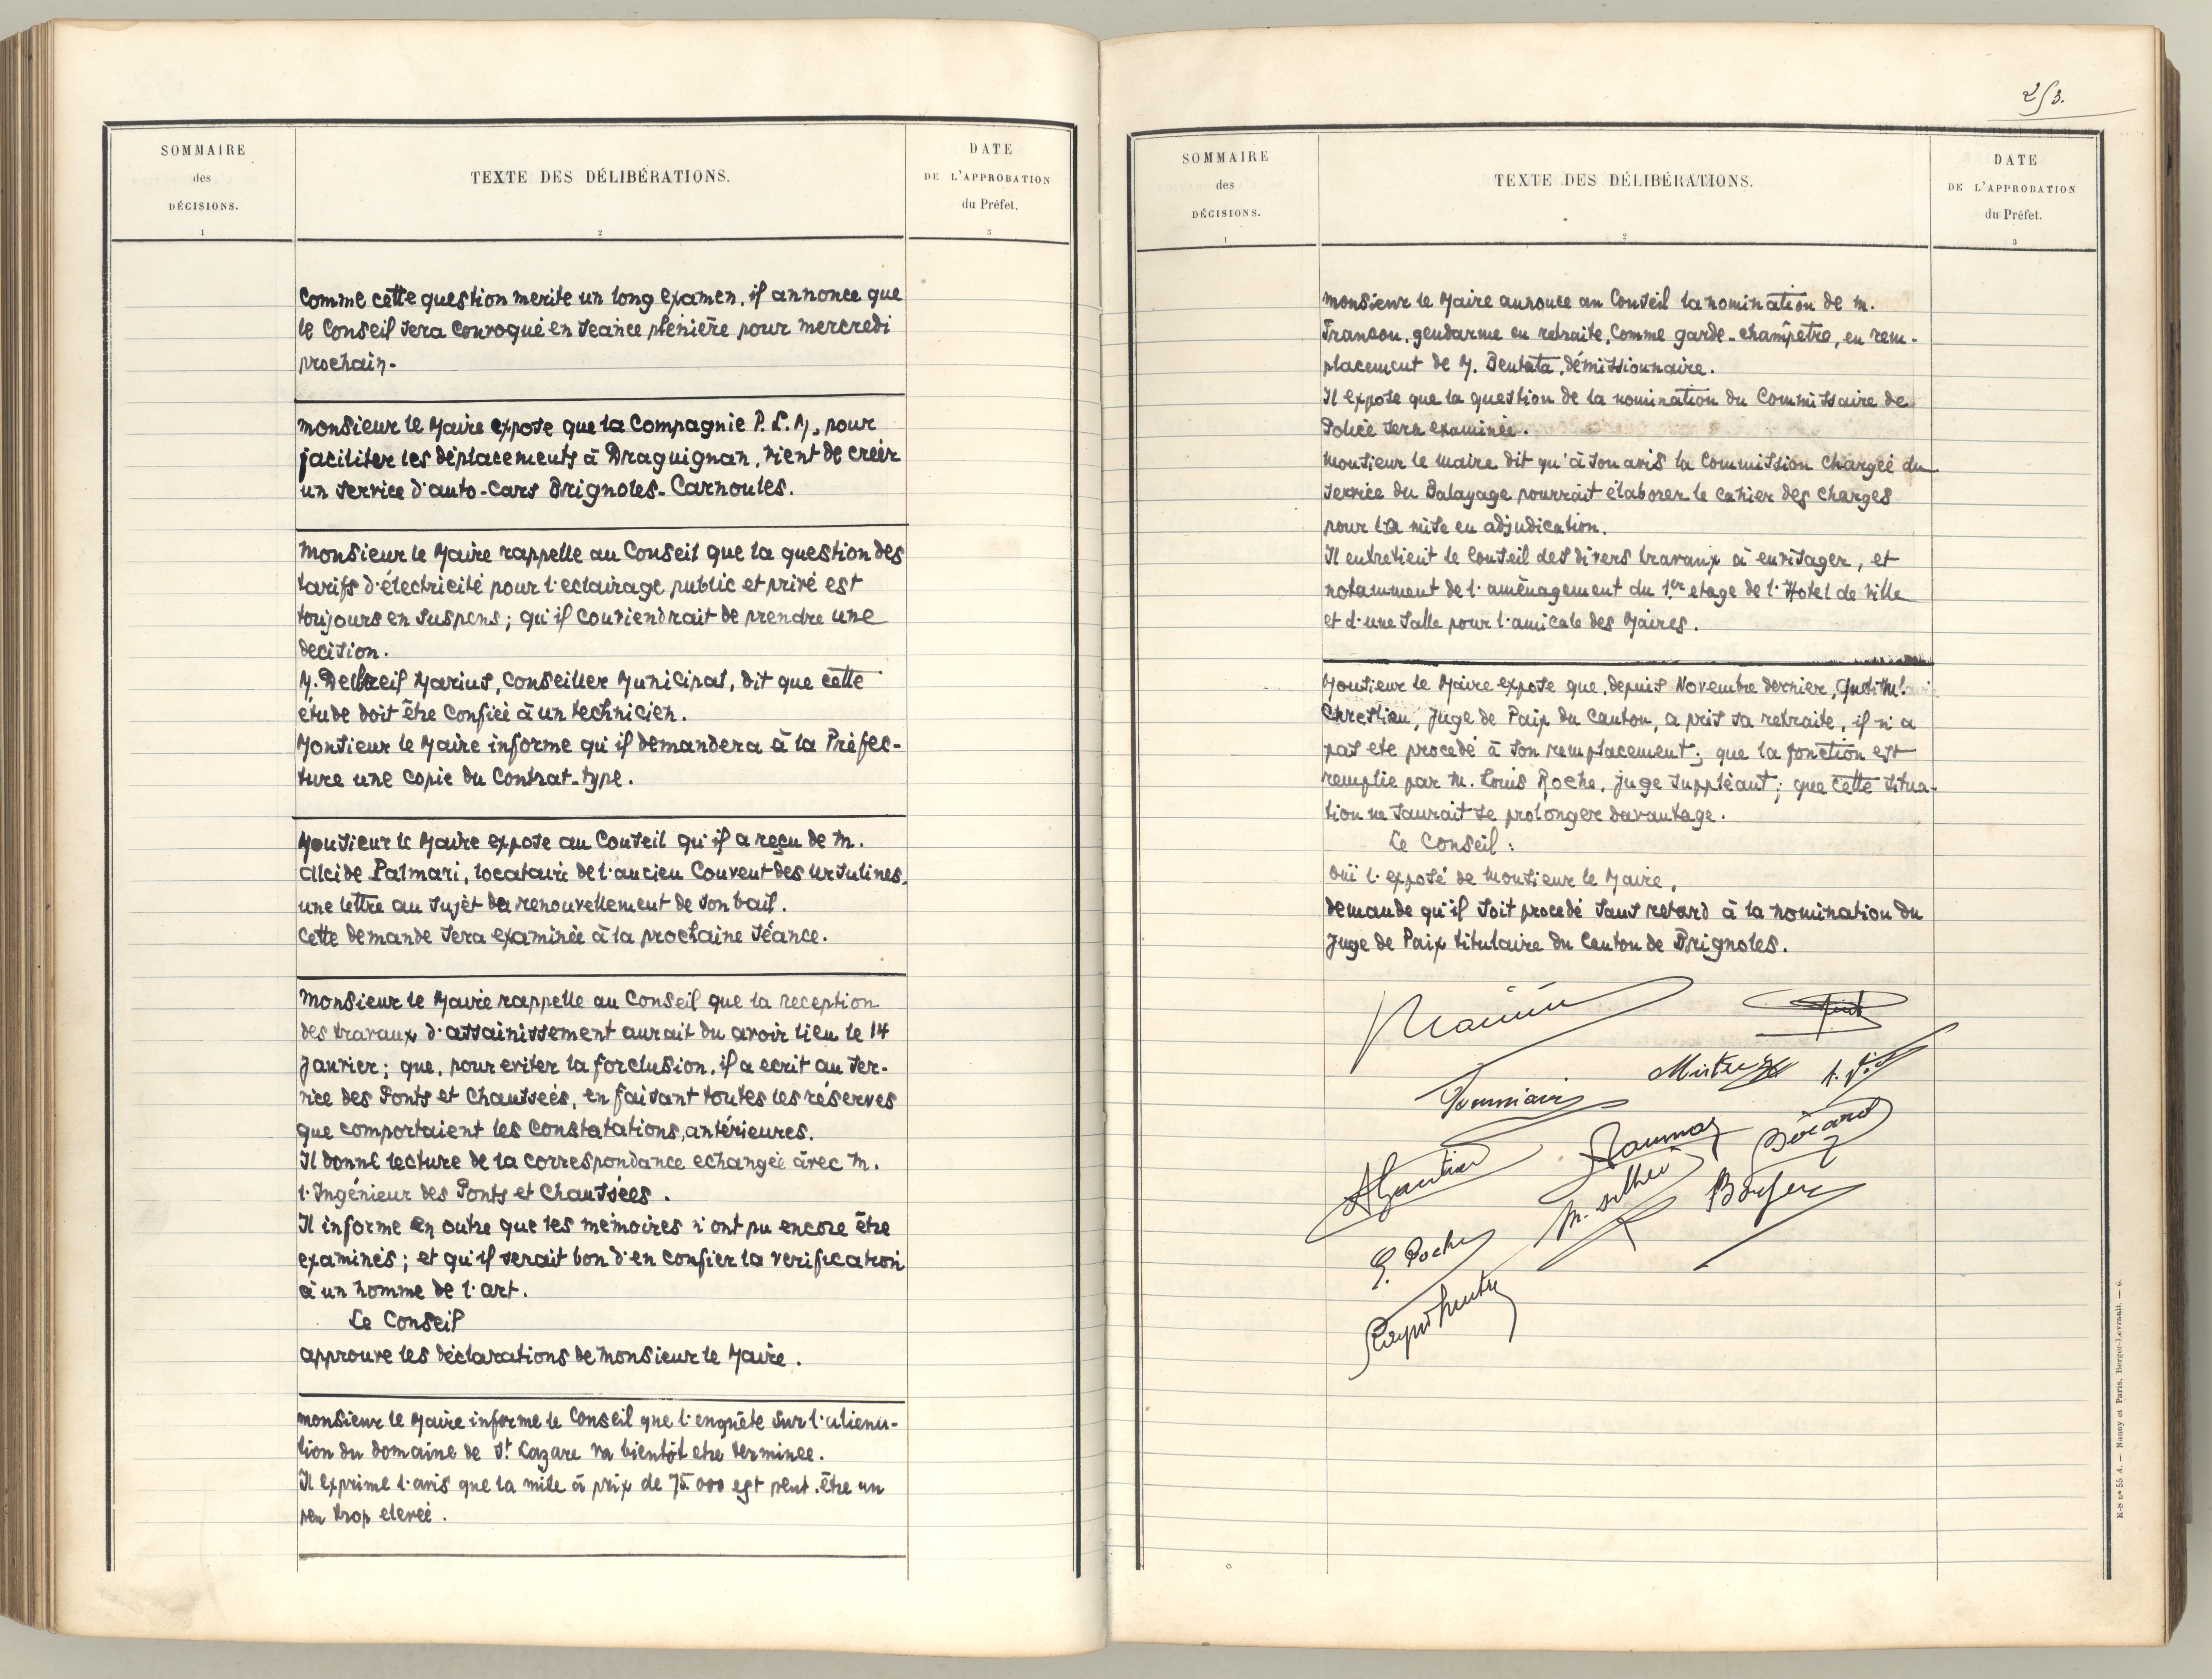 SOMMAIRE
des
DÉCISIONS.
1
TEXTE DES DÉLIBÉRATIONS.
2
DATE
DE L'APPROBATION
du Préfet.
3
Comme cette question merite un long examen, il annonce que
le Conseil sera convoqué en seance plénière pour mercredi
prochain.
Monsieur le Maire expose que la Compagnie P. L. M, pour
faciliter les déplacements à Draguignan, vient de créer
un service d'auto-cars Brignoles-Carnoules.
Monsieur le Maire rappelle au Conseil que la question des
tarifs d'électricité pour l'eclairage public et privé est
toujours en suspens; qu'il conviendrait de prendre une
decision.
M. Delbreil Marius, conseiller Municipal, dit que cette
étude doit être confiée à un technicien.
Monsieur le Maire informe qu'il demandera à la Préfec-
ture une copie du Contrat-type.
Monsieur le Maire expose au Conseil qu'il a reçu de M.
Alcide Palmari, locataire de l'ancien Couvent des Ursulines,
une lettre au sujet du renouvellement de son bail.
Cette demande sera examinée à la prochaine séance.
Monsieur le Maire rappelle au Conseil que la reception
des travaux d'assainissement aurait du avoir lieu le 14
Janvier; que, pour eviter la forclusion, il a ecrit au Ser-
vice des Ponts et Chaussées, en faisant toutes les réserves
que comportaient les constatations antérieures.
Il donne lecture de la correspondance echangée avec M.
l'Ingénieur des Ponts et Chaussées.
Il informe en outre que les mémoires n'ont pu encore être
examinés; et qu'il serait bon d'en confier la verification
à un homme de l'art.
Le Conseil
approuve les déclarations de Monsieur le Maire.
Monsieur le Maire informe le Conseil que l'enquête sur l'aliena-
tion du domaine de St Lazare va bientôt etre terminee.
Il exprime l'avis que la mise à prix de 75.000 est peut.être un
peu trop elevée.
253.
SOMMAIRE
des
DÉCISIONS.
1
TEXTE DES DÉLIBÉRATIONS.
2
DATE
DE L'APPROBATION
du Préfet.
3
Monsieur le Maire annonce au Conseil la nomination de M.
Trancou, gendarme en retraite, comme garde-champêtre, en rem-
placement de M. Bentata, démissionnaire.
Il expose que la question de la nomination du Commissaire de
Police sera examinée.
Monsieur le Maire dit qu'à son avis la Commission chargée du
service du Balayage pourrait élaborer le cahier des charges
pour la mise en adjudication.
Il entretient le Conseil des divers travaux à envisager, et
notamment de l'aménagement du 1er etage de l'Hotel de Ville
et d'une salle pour l'amicale des Maires.
Monsieur le Maire expose que, depuis Novembre dernier,
Chrestien, Juge de Paix du Canton, a pris sa retraite, il n'a
pas ete procedé à son remplacement; que la fonction est
remplie par M. Louis Roche, juge suppléant; que cette situa-
tion ne saurait se prolonger davantage.
Le Conseil:
Ouï l'exposé de Monsieur le Maire,
demande qu'il soit procedé sans retard à la nomination du
Juge de Paix titulaire du Canton de Brignoles.
A Gautier
Bérard
E. Roche
E-S n° 55 A. — Nancy et Paris, Berger-Levrault. — 6.